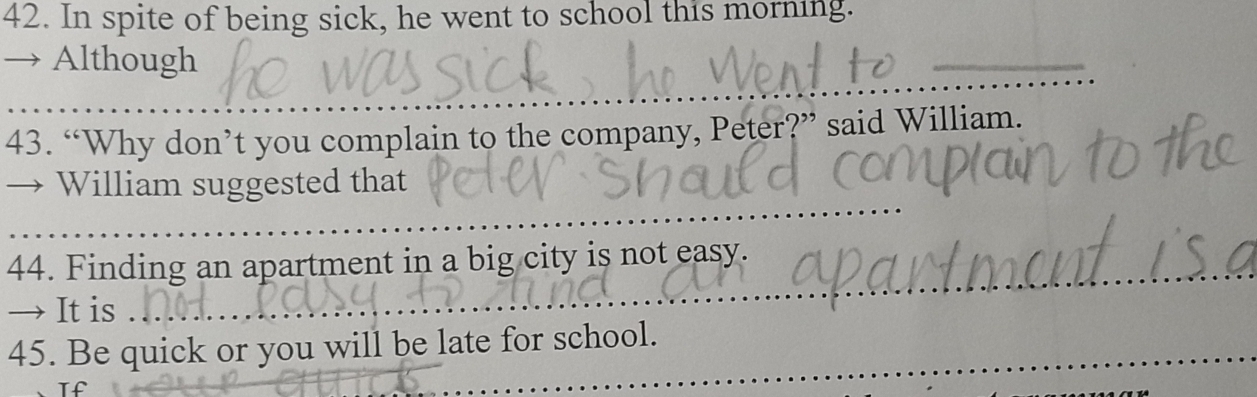 42. In spite of being sick, he went to school this morning.
→ Although he was sick, he went to
43. “Why don’t you complain to the company, Peter?” said William.
→ William suggested that Peter should complain to the
44. Finding an apartment in a big city is not easy.
→ It is not easy to find an apartment is a
45. Be quick or you will be late for school.
If